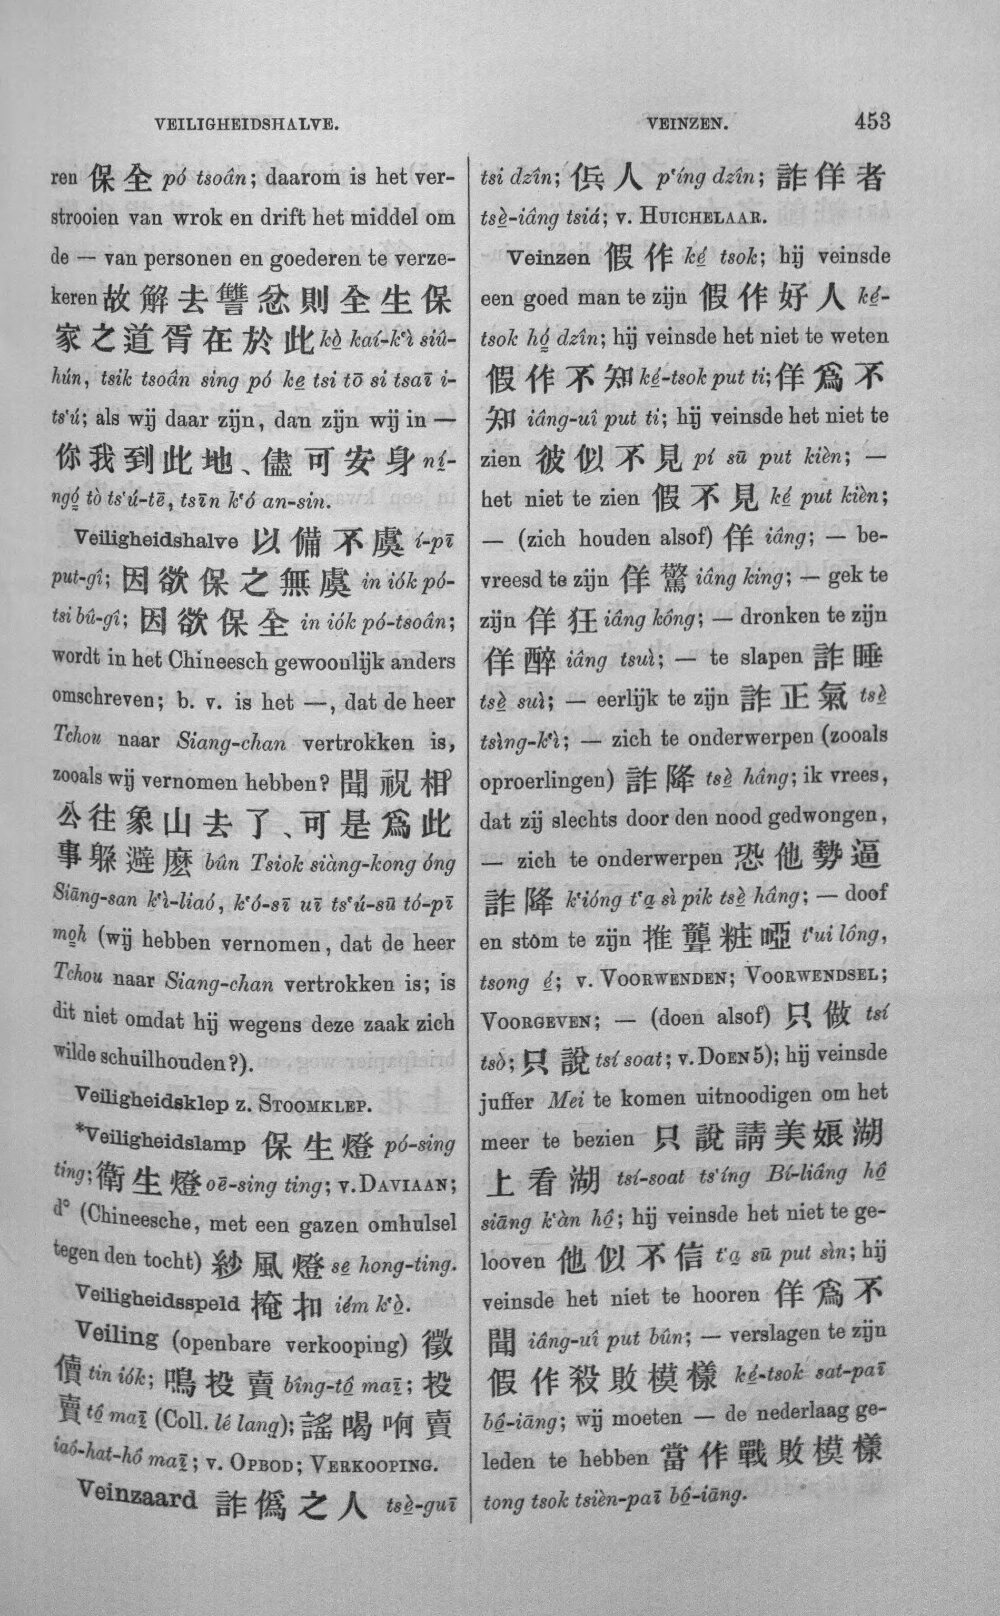 VEILIGHEIDSHALVE.
VEINZEN. 453
ren 保全 pó tsoân; daarom is het ver-
strooien van wrok en drift het middel om
de — van personen en goederen te verze-
keren 故解去讐忿則全生保
家之道胥在於此 kò̤ kaí-k‘ì siû-
hún, tsik tsoân sing pó ke̤ tsi tō si tsaī i-
ts‘ú; als wij daar zijn, dan zijn wij in —
你我到此地、儘可安身 ní̤-
ngó̤ tò ts‘ú-tē, tsīn k‘ó an-sin.
Veiligheidshalve 以備不虞 í-pī
put-gî; 因欲保之無虞 in iók pó-
tsi bû-gî; 因欲保全 in iók pó-tsoân;
wordt in het Chineesch gewoonlijk anders
omschreven; b. v. is het —, dat de heer
Tchou naar Siang-chan vertrokken is,
zooals wij vernomen hebben? 聞祝相
公往象山去了、可是爲此
事躱避麽 bûn Tsiok siàng-kong óng
Siāng-san k‘ì-liaó, k‘ó-sī uī ts‘ú-sū tó-pī
mo̤h (wij hebben vernomen, dat de heer
Tchou naar Siang-chan vertrokken is; is
dit niet omdat hij wegens deze zaak zich
wilde schuilhouden?).
Veiligheidsklep z. STOOMKLEP.
*Veiligheidslamp 保生燈 pó-sing
ting; 衛生燈 oē-sing ting; v. DAVIAAN;
d° (Chineesche, met een gazen omhulsel
tegen den tocht) 紗風燈 se̤ hong-ting.
Veiligheidsspeld 掩扣 iém k‘ò̤.
Veiling (openbare verkooping) 徵
儥 tin iók; 鳴投賣 bîng-tô̤ maī̤; 投
賣 tô̤ maī̤ (Coll. lé lang̤); 謠喝响賣
iaô-hat-hô maī̤; v. OPBOD; VERKOOPING.
Veinzaard 詐僞之人 tsè̤-guī
tsi dzîn; 㑂人 p‘íng dzîn; 詐佯者
tsè̤-iâng tsiá; v. HUICHELAAR.
Veinzen 假作 ké̤ tsok; hij veinsde
een goed man te zijn 假作好人 ké̤-
tsok hó̤ dzîn; hij veinsde het niet te weten
假作不知 ké̤-tsok put ti; 佯爲不
知 iâng-uî put ti; hij veinsde het niet te
zien 彼似不見 pí sū put kièn; —
het niet te zien 假不見 ké̤ put kièn;
— (zich houden alsof) 佯 iâng; — be-
vreesd te zijn 佯驚 iâng king; — gek te
zijn 佯狂 iâng kông; — dronken te zijn
佯醉 iâng tsuì; — te slapen 詐睡
tsè̤ suì; — eerlijk te zijn 詐正氣 tsè̤
tsìng-k‘ì; — zich te onderwerpen (zooals
oproerlingen) 詐降 tsè̤ hâng; ik vrees,
dat zij slechts door den nood gedwongen,
— zich te onderwerpen 恐他勢逼
詐降 k‘ióng t‘a̤ sì pik tsè̤ hâng; — doof
en stom te zijn 推聾粧啞 t‘ui lông,
tsong é̤; v. VOORWENDEN; VOORWENDSEL;
VOORGEVEN; — (doen alsof) 只做 tsí
tsò; 只說 tsí soat; v. DOEN 5); hij veinsde
juffer Mei te komen uitnoodigen om het
meer te bezien 只說請美娘湖
上看湖 tsí-soat ts‘íng Bí-liâng hô̤
siāng k‘àn hô̤; hij veinsde het niet te ge-
looven 他似不信 t‘a̤ sū put sìn; hij
veinsde het niet te hooren 佯爲不
聞 iâng-uî put bûn; — verslagen te zijn
假作殺敗模樣 ké̤-tsok sat-paī
bô̤-iāng; wij moeten — de nederlaag ge-
leden te hebben 當作戰敗模樣
tong tsok tsièn-paī bô̤-iāng.